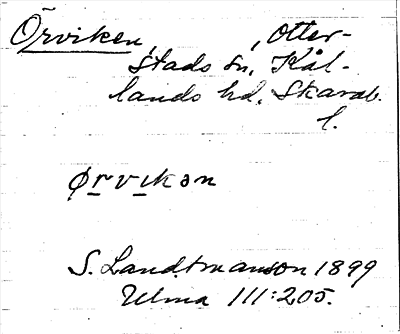 Örviken, Otter-
stads sn, Kål-
lands hd. Skarab.
l.
ørvıkən
S. Landtmanson 1899
Ulma 111:205.